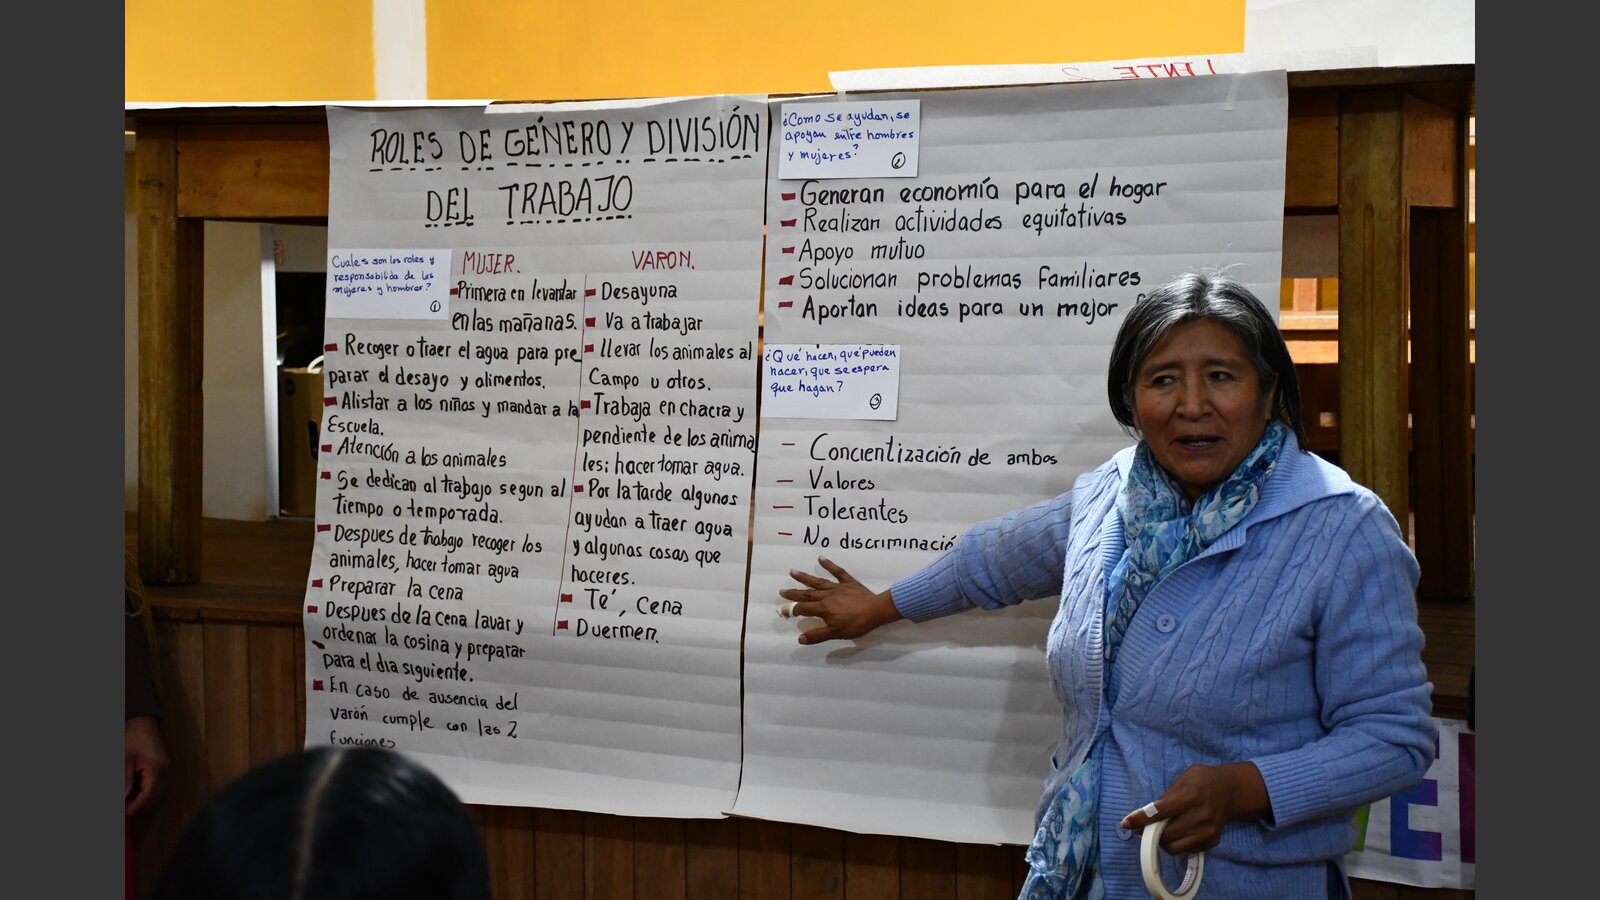 ROLES DE GÉNERO Y DIVISIÓN
DEL TRABAJO
Cuales son los roles y
responsabilida de las
mujeres y hombres?
1
MUJER.
Primera en levantar
en las mañanas.
Recoger o traer el agua para pre
parar el desayo y alimentos.
Alistar a los niños y mandar a la
Escuela.
Atención a los animales
Se dedican al trabajo segun al
tiempo o temporada.
Despues de trabajo recoger los
animales, hacer tomar agua
Preparar la cena
Despues de la cena lavar y
ordenar la cosina y preparar
para el dia siguiente.
En caso de ausencia del
varón cumple con las 2
funciones
VARON.
Desayuna
Va a trabajar
llevar los animales al
Campo u otros.
Trabaja en chacra y
pendiente de los anima
les; hacer tomar agua.
Por la tarde algunos
ayudan a traer agua
y algunas cosas que
haceres.
Té, cena
Duermen.
LENTE 2
¿Como se ayudan, se
apoyan entre hombres
y mujeres?
- Generan economía para el hogar
- Realizan actividades equitativas
- Apoyo mutuo
- Solucionan problemas familiares
- Aportan ideas para un mejor
¿Qué hacen, qué pueden
hacer, que se espera
que hagan?
3
- Concientización de ambos
- Valores
- Tolerantes
- No discriminació